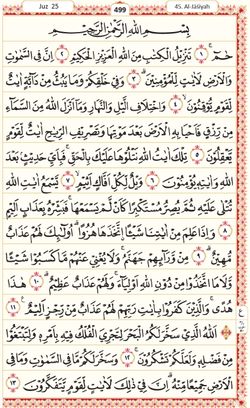 Juz 25 499 45. Al-Jāṡiyah
بِسْمِ اللّٰهِ الرَّحْمٰنِ الرَّحِيْمِ
حٰمۤ ۚ ١ تَنْزِيْلُ الْكِتٰبِ مِنَ اللّٰهِ الْعَزِيْزِ الْحَكِيْمِ ٢ اِنَّ فِى السَّمٰوٰتِ
وَالْاَرْضِ لَاٰيٰتٍ لِّلْمُؤْمِنِيْنَ ۗ ٣ وَفِيْ خَلْقِكُمْ وَمَا يَبُثُّ مِنْ دَاۤبَّةٍ اٰيٰتٌ
لِّقَوْمٍ يُّوْقِنُوْنَ ۙ ٤ وَاخْتِلَافِ الَّيْلِ وَالنَّهَارِ وَمَآ اَنْزَلَ اللّٰهُ مِنَ السَّمَاۤءِ
مِنْ رِّزْقٍ فَاَحْيَا بِهِ الْاَرْضَ بَعْدَ مَوْتِهَا وَتَصْرِيْفِ الرِّيٰحِ اٰيٰتٌ لِّقَوْمٍ
يَّعْقِلُوْنَ ٥ تِلْكَ اٰيٰتُ اللّٰهِ نَتْلُوْهَا عَلَيْكَ بِالْحَقِّۚ فَبِاَيِّ حَدِيْثٍۢ بَعْدَ
اللّٰهِ وَاٰيٰتِهٖ يُؤْمِنُوْنَ ٦ وَيْلٌ لِّكُلِّ اَفَّاكٍ اَثِيْمٍۙ ٧ يَّسْمَعُ اٰيٰتِ اللّٰهِ
تُتْلٰى عَلَيْهِ ثُمَّ يُصِرُّ مُسْتَكْبِرًا كَاَنْ لَّمْ يَسْمَعْهَاۚ فَبَشِّرْهُ بِعَذَابٍ اَلِيْمٍ
٨ وَاِذَا عَلِمَ مِنْ اٰيٰتِنَا شَيْـًٔا ۨاتَّخَذَهَا هُزُوًاۗ اُولٰۤىِٕكَ لَهُمْ عَذَابٌ
مُّهِيْنٌۗ ٩ مِنْ وَّرَاۤىِٕهِمْ جَهَنَّمُۚ وَلَا يُغْنِيْ عَنْهُمْ مَّا كَسَبُوْا شَيْـًٔا
وَّلَا مَا اتَّخَذُوْا مِنْ دُوْنِ اللّٰهِ اَوْلِيَاۤءَۚ وَلَهُمْ عَذَابٌ عَظِيْمٌۗ ١٠ هٰذَا
هُدًىۚ وَالَّذِيْنَ كَفَرُوْا بِاٰيٰتِ رَبِّهِمْ لَهُمْ عَذَابٌ مِّنْ رِّجْزٍ اَلِيْمٌ ١١
اَللّٰهُ الَّذِيْ سَخَّرَ لَكُمُ الْبَحْرَ لِتَجْرِيَ الْفُلْكُ فِيْهِ بِاَمْرِهٖ وَلِتَبْتَغُوْا
مِنْ فَضْلِهٖ وَلَعَلَّكُمْ تَشْكُرُوْنَۚ ١٢ وَسَخَّرَ لَكُمْ مَّا فِى السَّمٰوٰتِ وَمَا فِى
الْاَرْضِ جَمِيْعًا مِّنْهُۗ اِنَّ فِيْ ذٰلِكَ لَاٰيٰتٍ لِّقَوْمٍ يَّتَفَكَّرُوْنَ ١٣